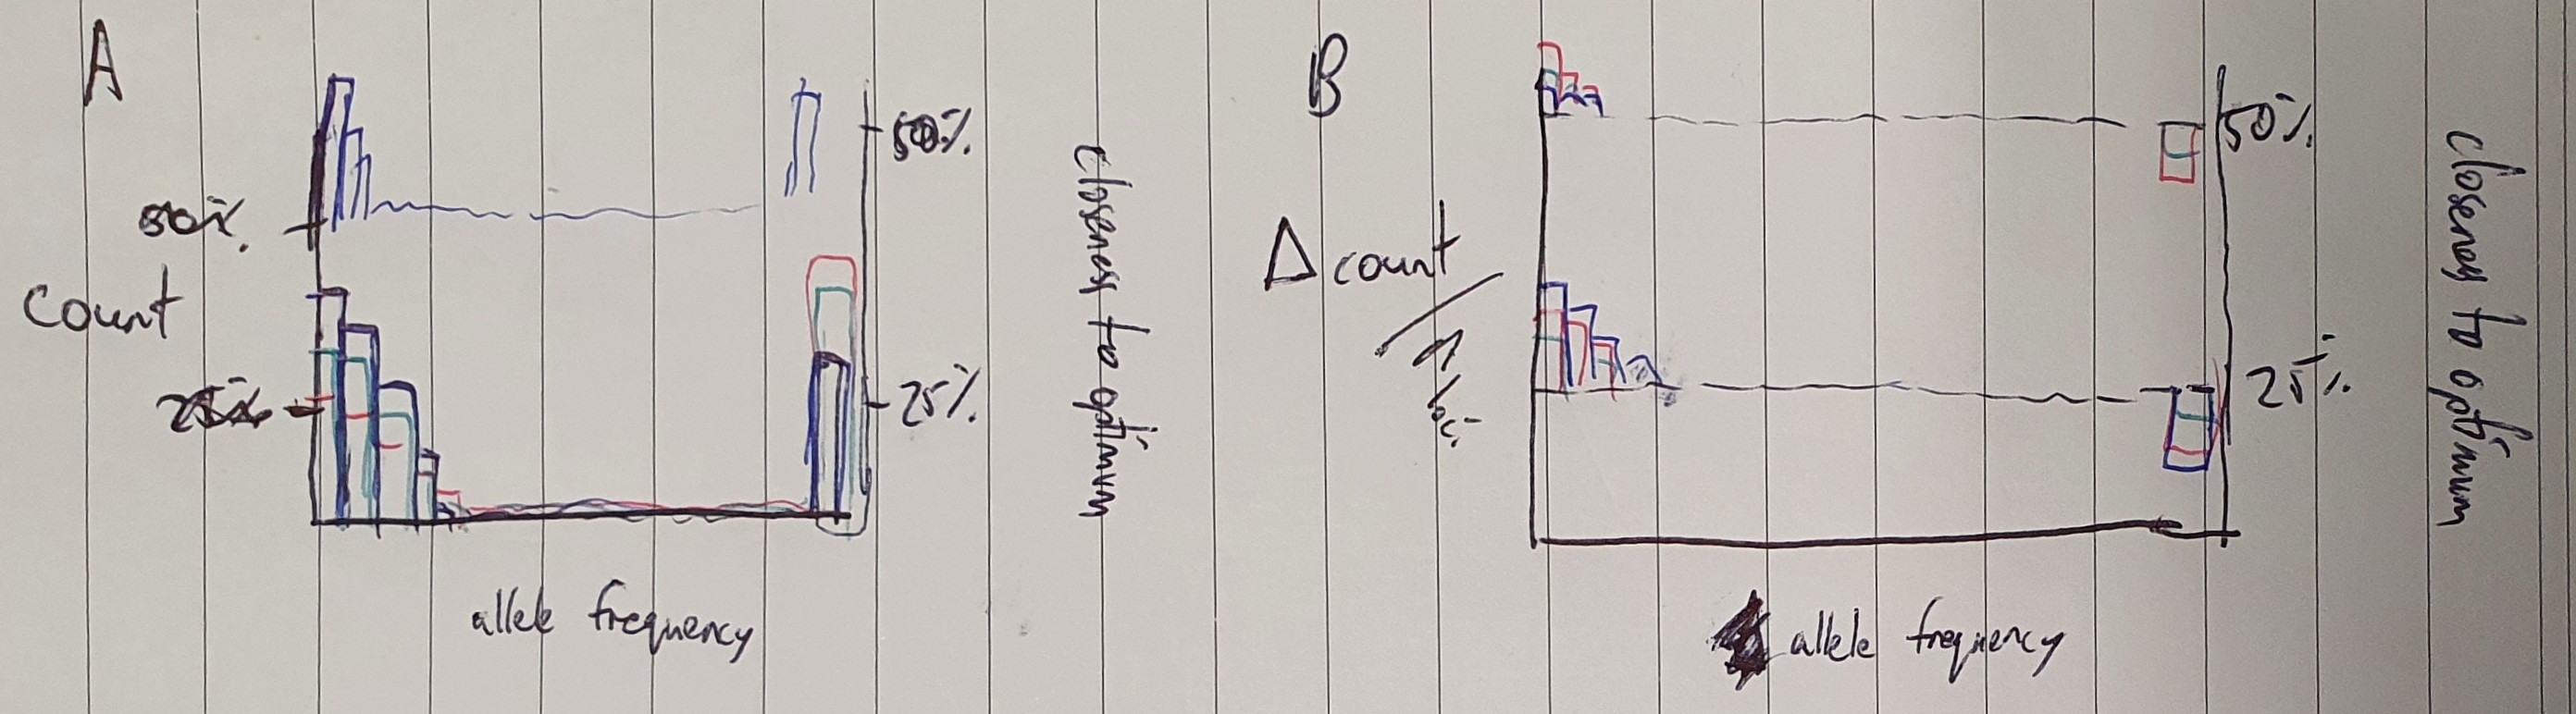 A
50%.
count
25%
50%.
25%
closeness to optimum
allele frequency
B
Δ count
/
loci
50%.
25%.
closeness to optimum
allele frequency